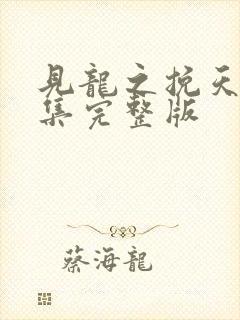 見龍之挽天
集完整版
蔡海龍